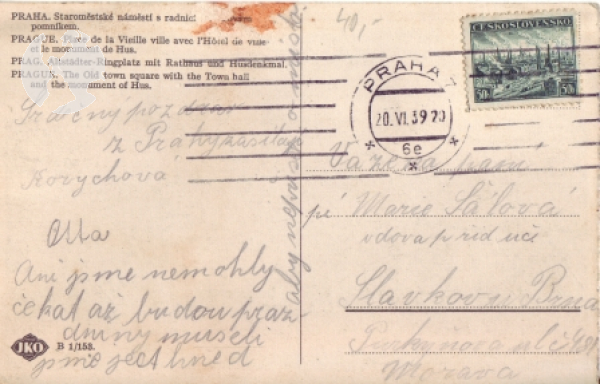 PRAHA. Staroměstské náměstí s radnicí
pomníkem.
PRAGUE. Place de la Vieille ville avec l'Hôtel de ville
et le monument de Hus.
PRAG. Altstädter-Ringplatz mit Rathaus und Husdenkmal.
PRAGUE. The Old town square with the Town hall
and the monument of Hus.
40,-
ČESKOSLOVENSKO
50h 50h
PRAHA 7
20.VI.39 20
6e
Srdečný pozdrav
z Prahy zasílají
Korychová
Olla
Ani jsme nemohly
čekat až budou práz-
dniny museli
jsme ject hned
aby nepršelo
Vážená paní
pí Marie Sálová
vdova
Slavkov u Brna
Morava
JKO B 1/153.